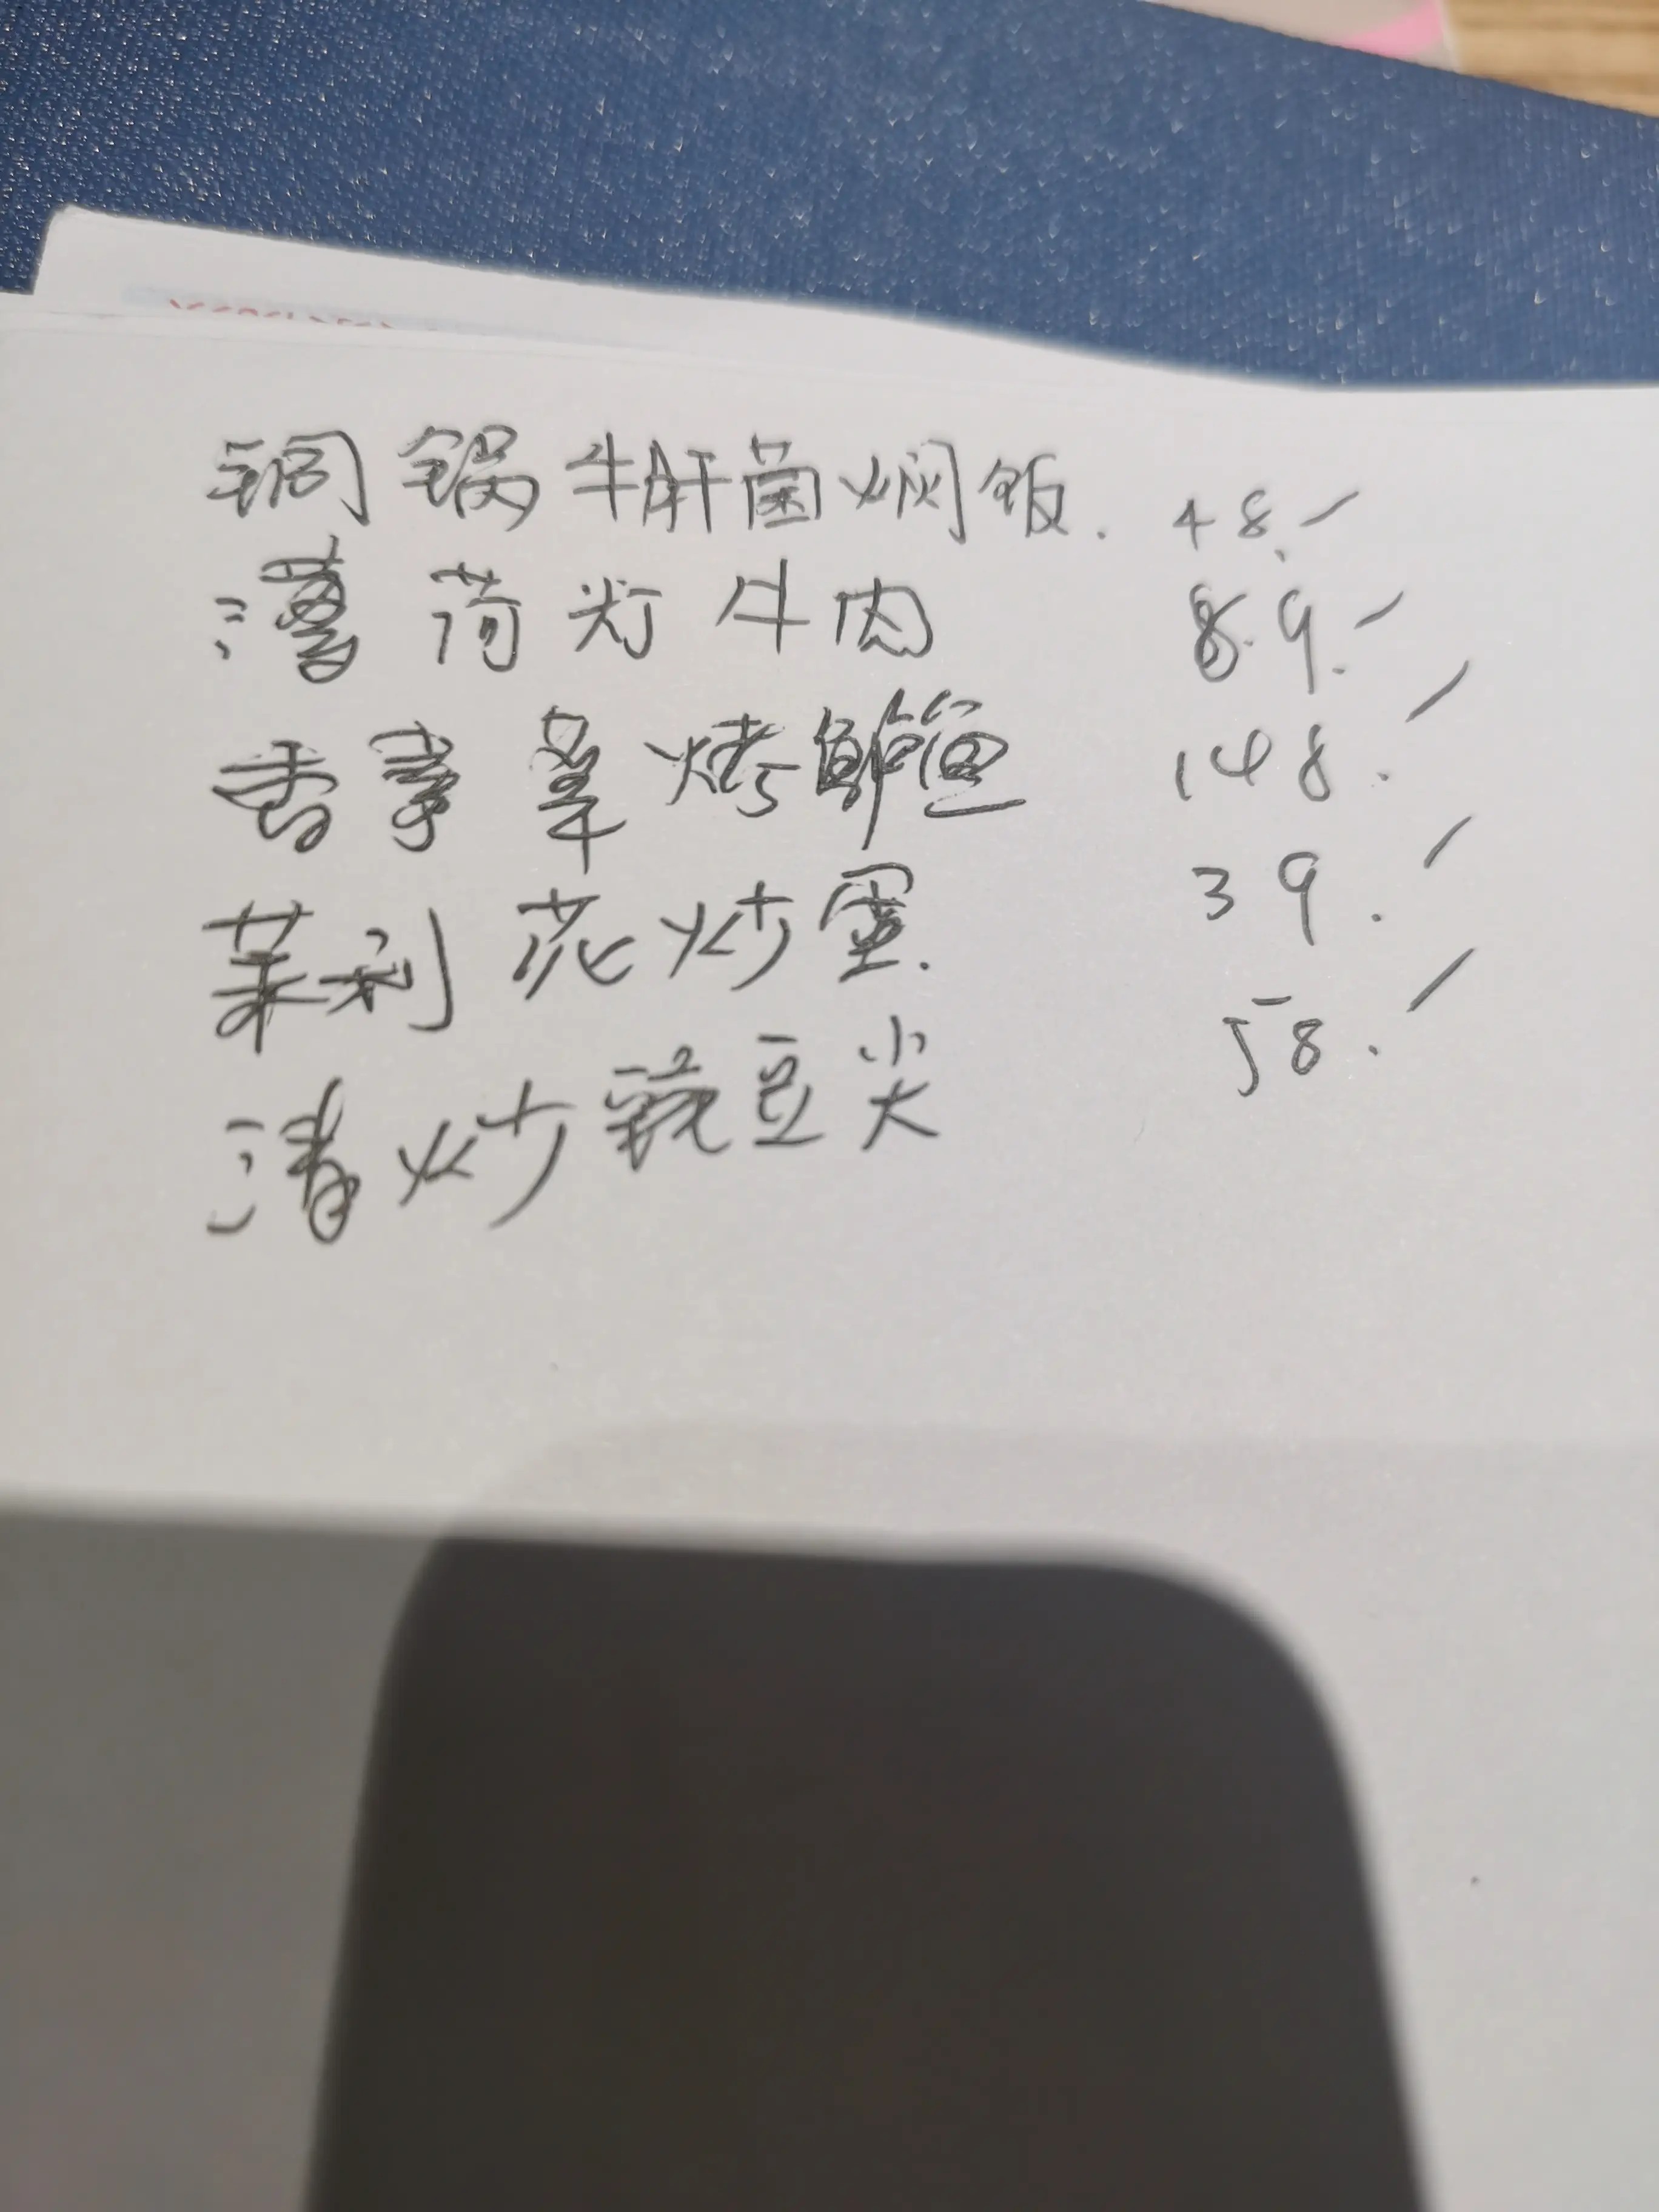 铜锅牛肝菌焖饭. 48.
薄荷灯牛肉 89.
香茅草烤鲈鱼 148.
茉利花炒蛋. 39.
清炒豌豆尖 58.